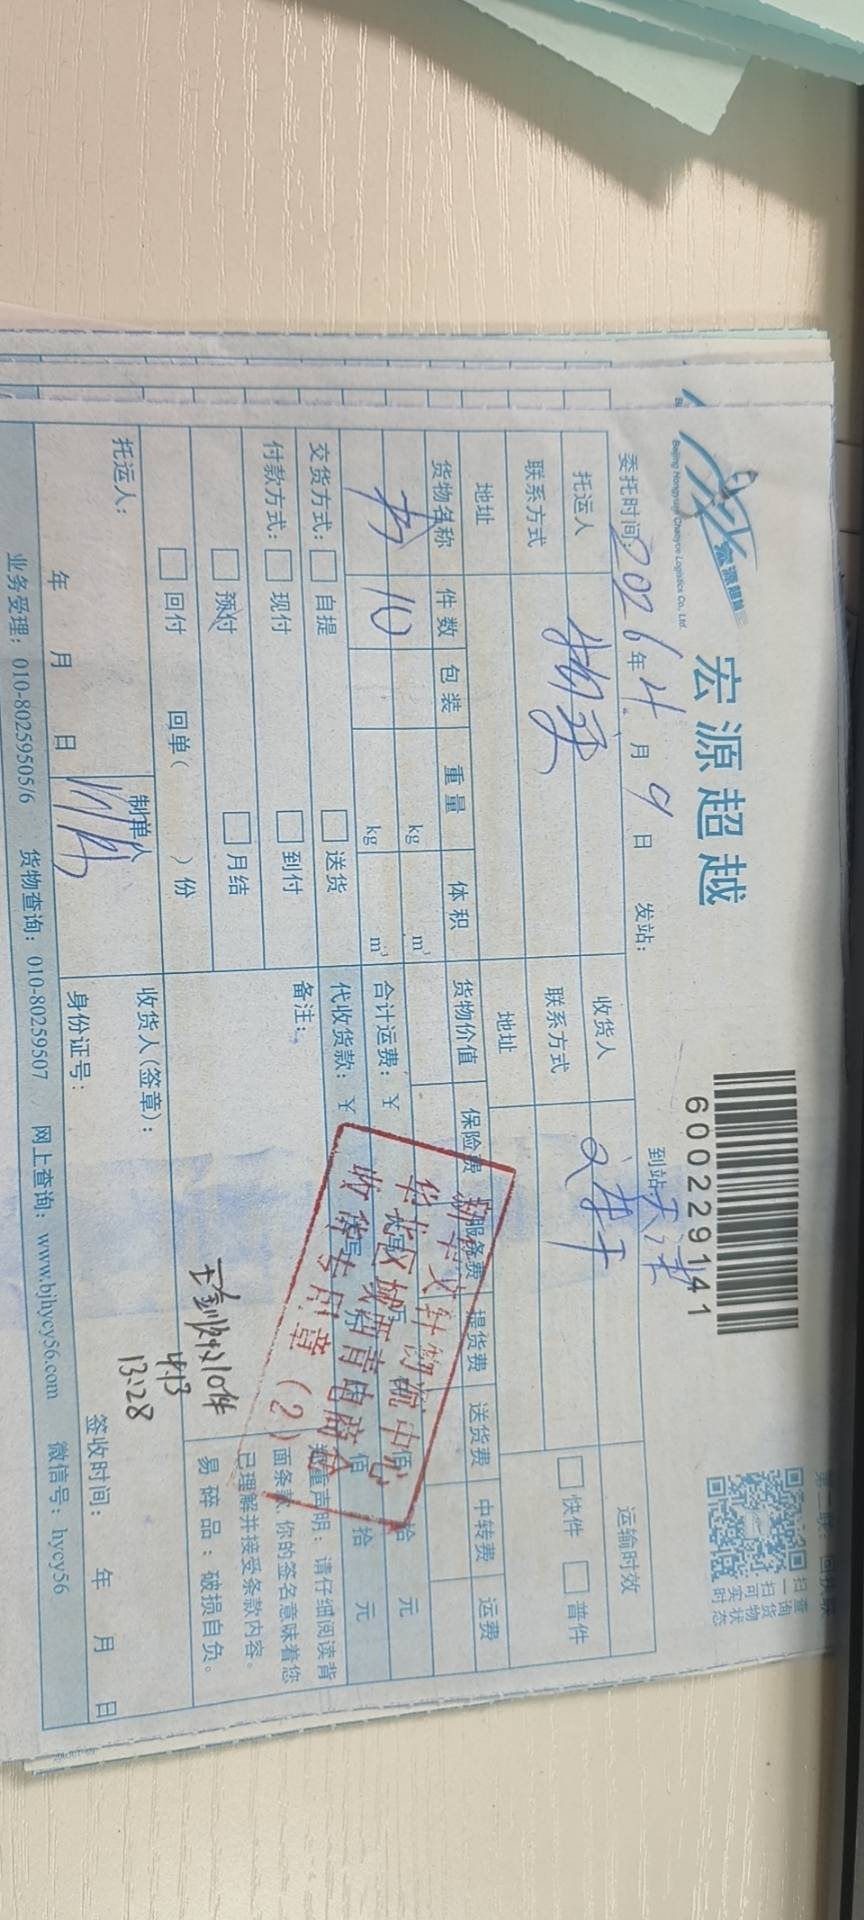 宏源超越
Beijing Hongyuan Chaoyue Logistics Co., Ltd.
宏源超越
6002229141
第二联：回执联
扫一扫可实时
查询货物状态
委托时间：2026年4月9日 发站： 到站：天津
托运人 收货人 文轩 运输时效
联系方式 联系方式 快件 普件
地址 地址
货物名称 件数 包装 重量 体积 货物价值 保险费 服务费 提货费 送货费 中转费 运费
书 10 kg m³
kg m³
合计运费：￥ 佰 拾 元
代收货款：￥ 佰 拾 元
交货方式： 自提 送货
付款方式： 现付 到付
预付 月结
回付 回单（ ）份
备注：
新华文轩物流中心
华北区域西青电商仓
收货专用章（2）
郑重声明：请仔细阅读背
面条款，你的签名意味着您
已理解并接受条款内容。
易碎品：破损自负。
收10件
4.13
13:28
托运人： 制单人 收货人（签章）：
年 月 日 身份证号： 签收时间： 年 月 日
业务受理：010-80259505/6 货物查询：010-80259507 网上查询：www.bjhycy56.com 微信号：hycy56